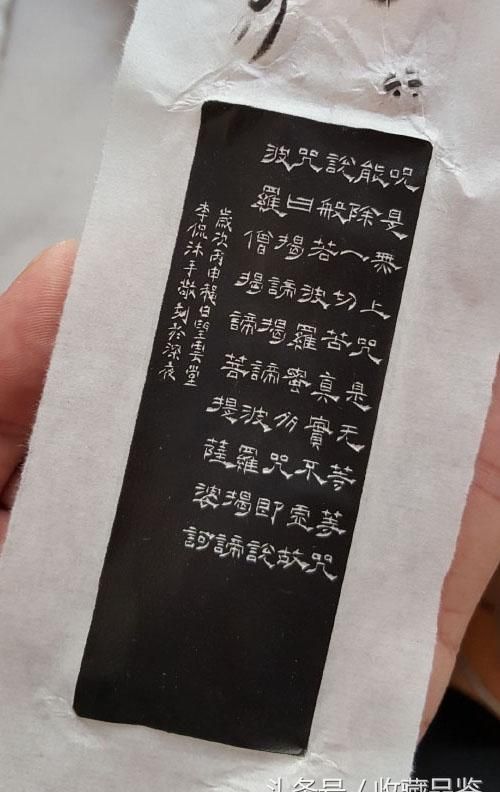 呪是無上咒是无等等咒
能除一切苦真實不虛故
說般若波羅蜜多咒即說
咒曰揭諦揭諦波羅揭諦
波羅僧揭諦菩提薩婆訶
歲次丙申穐日望雲堂
李侃沐手敬刻於深夜
头条号 / 收藏品鉴